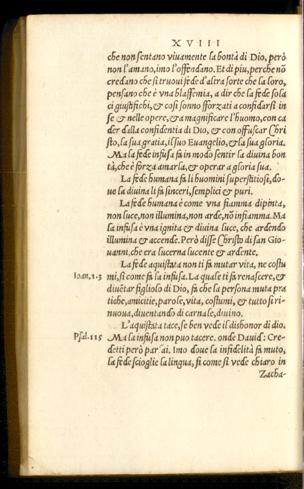 XVIII
che non sentano viuamente la bontà di Dio, però
non l'amano, imo l'offendano. Et di piu, perche nõ
credano che si truoui fede d'altra sorte che la loro,
pensano che è vna blassemia, a dir che la fede sola
ci giustifichi, & così sonno sforzati a confidarsi in
se & nelle opere, & a magnificare l'huomo, con ca
der dalla confidentia di Dio, & con offuscar Chri
sto, la sua gratia, il suo Euangelio, & la sua gloria.
Ma la fede infusa fa in modo sentir la diuina bon
tà, che è forza amarla, & operar a gloria sua.
La fede humana fa li huomini superstitiosi, do-
ue la diuina li fa sinceri, semplici & puri.
La fede humana è come vna fiamma dipinta,
non luce, non illumina, non arde, nõ infiamma. Ma
la infusa è vna ignita & diuina luce, che ardendo
illumina & accende. Però disse Christo di san Gio-
uanni, che era lucerna lucente & ardente.
La fede aquistata non ti fa mutar vita, ne costu
Ioan.1.3 mi, sì come fa la infusa. La quale ti fa renascere, &
diuẽtar figliolo di Dio, fa che la persona muta pra
tiche, amicitie, parole, vita, costumi, & tutto si ri-
nuoua, diuentando di carnale, diuino.
L'aquistata tace, se ben vede il dishonor di dio.
Psal.115 Ma la infusa non puo tacere, onde Dauid: Cre-
detti però parlai. Imo doue la infidelità fa muto,
la fede scioglie la lingua, sì come si vede chiaro in
Zacha-